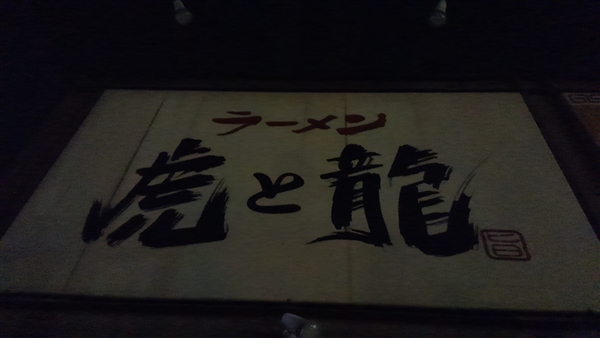 ラーメン
虎と龍